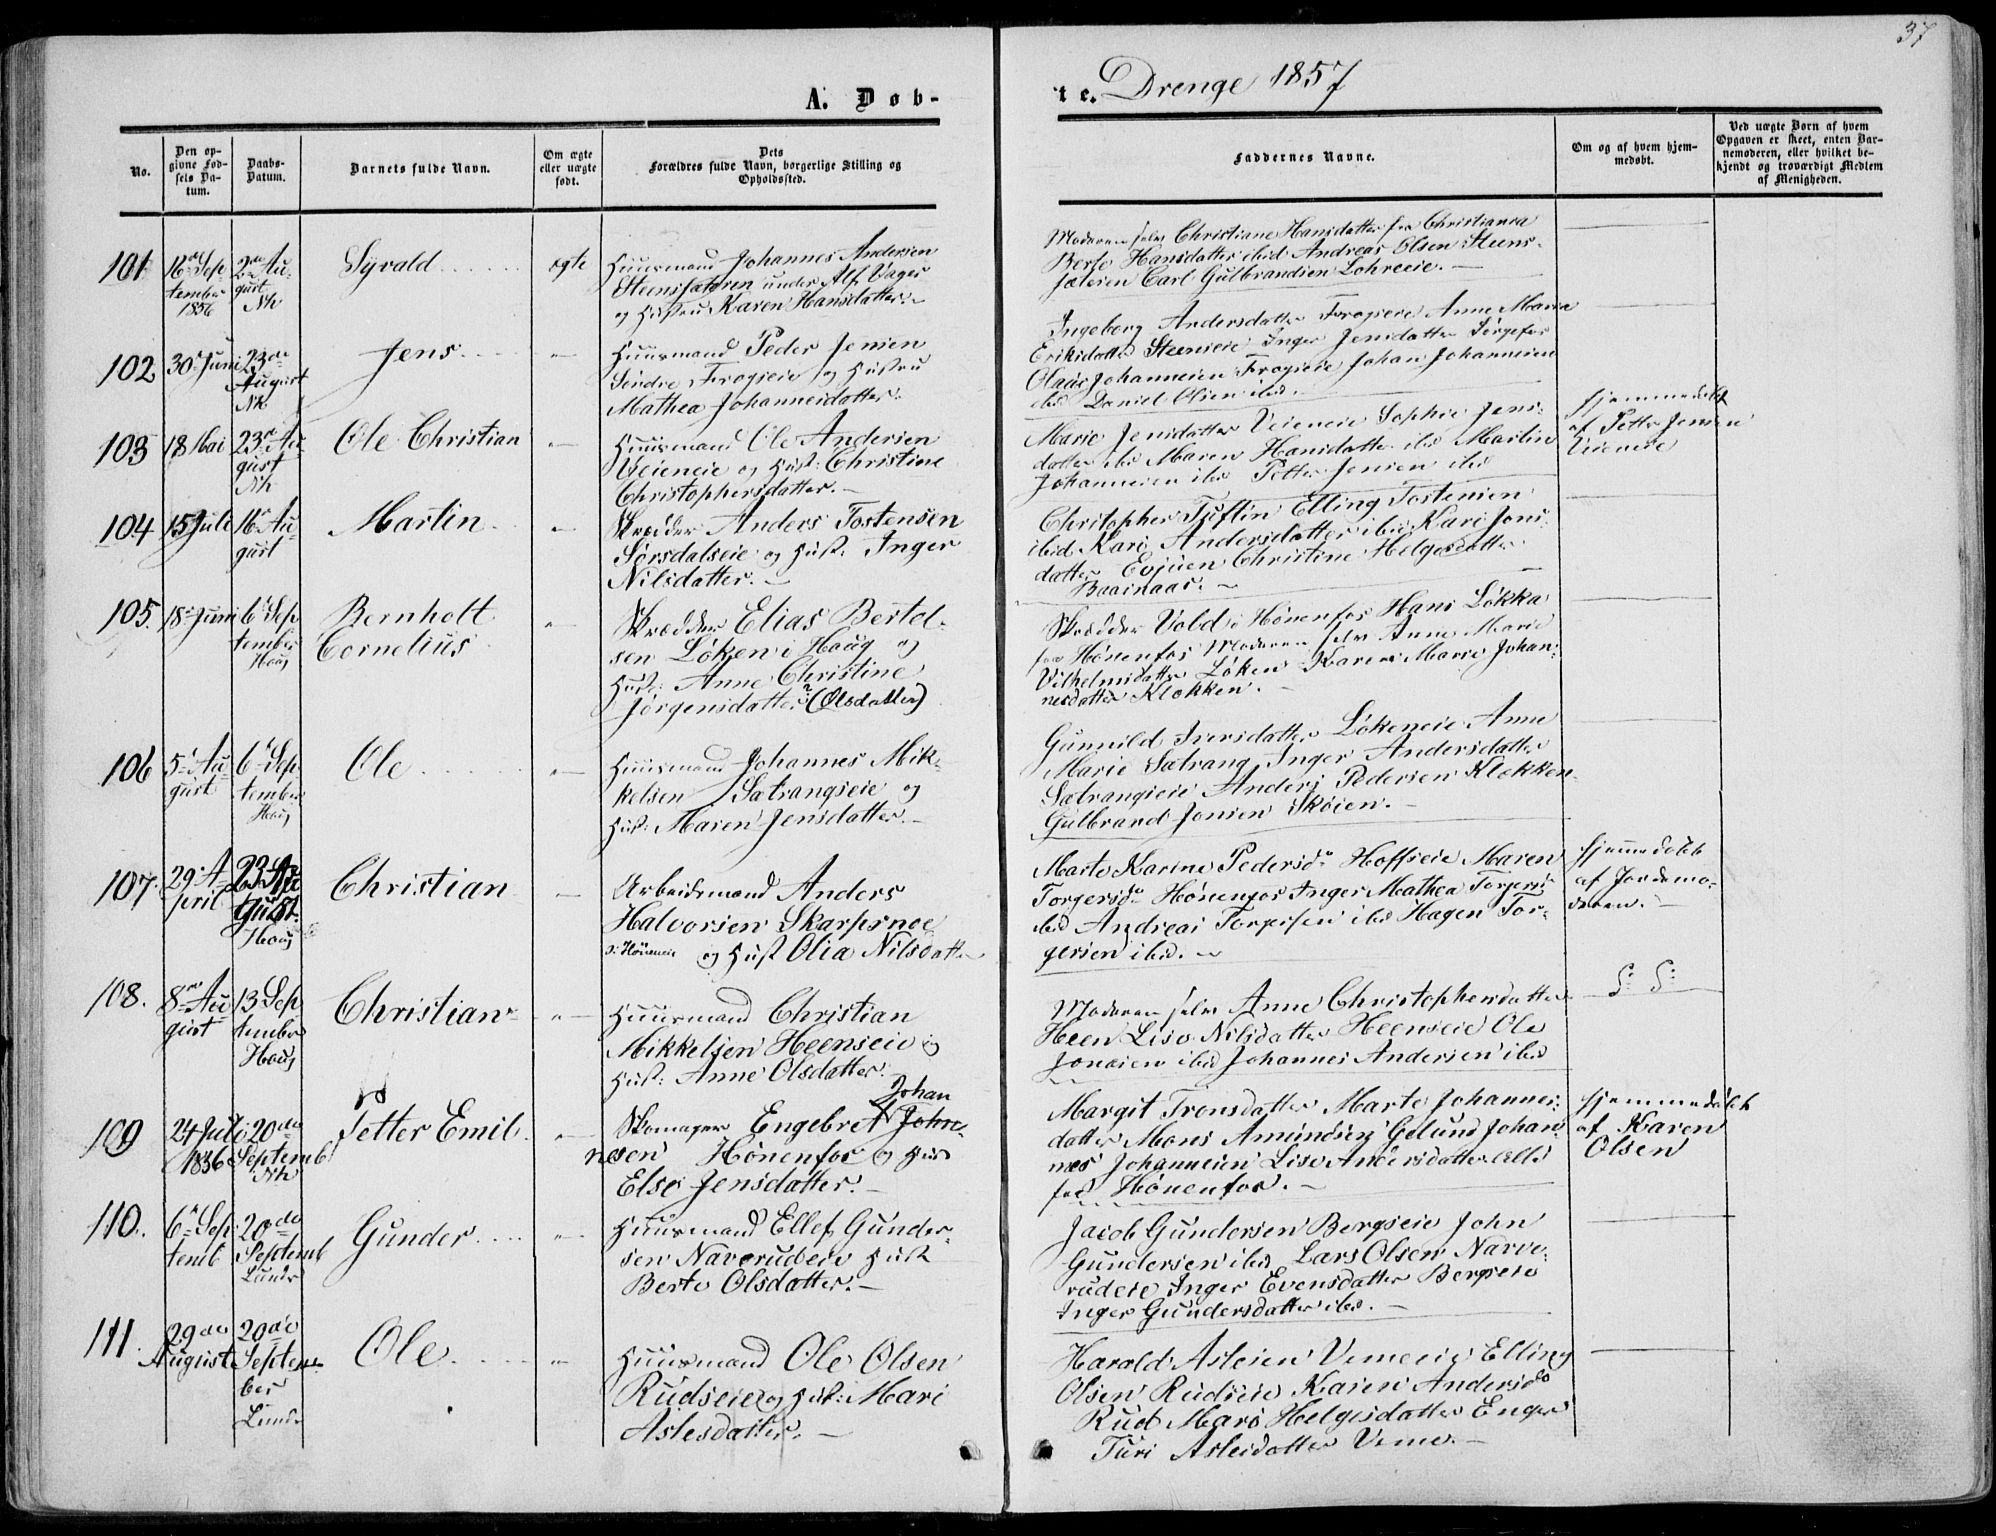 37
A. Døb-
te. Drenge 1857
No.
Den op-
givne Fød-
sels Da-
tum.
Daabs-
Datum.
Barnets fulde Navn.
Om ægte
eller uægte
født.
Dets
Forældres fulde Navn, borgerlige Stilling og
Opholdssted.
Faddernes Navne.
Om og af hvem hjem-
medøbt.
Ved uægte Børn af hvem
Opgaven er skeet, enten Bar-
nemoderen, eller hvilket be-
kjendt og troværdigt Medlem
af Menigheden.
101
16de Sep
tember
1856
2den Au-
gust
Nh
Syvald
ægte
Huusmand Johannes Andersen
Steensjøteren under Alf Vager
og Hustru Karen Hansdatter.
Moderen selv Christiane Hansdatter fra Christiania
Berte Hansdatter ibid Andreas Olsen Steens-
Carl Gulbrandsen Lohreeie.
102
30 Juni
23de
August
Nh
Jens
"
Huusmand Peder Jensen
Søndre Frogseie og Hustru
Mathea Johannesdatter.
Ingeborg Andersdatter Frogseie Anne Maria
Eriksdatter Steenseie Inger Jensdatter
Olaus Johannesen Frogseie Johan Johannesen
ibid Daniel Olsen ibid.
103
18 Mai
23de Au
gust
Nh
Ole Christian
"
Huusmand Ole Andersen
Veieneie og Hust: Christine
Christophersdatter.
Marie Jensdatter Veieneie Sophie Jens-
datter ibd Maren Hansdatter ibd Martin
Johannesen ibd Petter Jensen ibd
Hjemmedøbt
af Petter Jensen
Veieneie
104
15 Juli
16de Au
gust
Martin
"
Skrædder Anders Tostensen
Sørsdalseie og Hust: Inger
Nilsdatter.
Christopher Tuftin Elling Tostensen
ibid Kari Andersdatter ibid Kari Jons-
datter Evjuen Christine Helgesdatter
105.
18 Juni
6te Sep
tember
Haug
Bernholt
Cornelius
"
Skrædder Elias Bertel-
sen Løken i Haug og
Hust: Anne Christine
Jørgensdatter? (Olsdatter)
Skrædder Vold i Hønenfos Hans Løkka
fra Hønenfos Moderen selv Anne Marie
Vilhelmsdatter Løken Karen Marie Johan-
nesdatter Klokken.
106
5te Au-
gust
6te Sep
tember
Haug
Ole
"
Huusmand Johannes Mik-
kelsen Sætrangseie og
Hust: Maren Jensdatter.
Gunnild Iversdatter Løkeneie Anne
Marie Sætrang Inger Andersdatter
Sætrangseie Anders Pedersen Klokken
Gulbrand Jonsen Skøien.
107.
29 A-
pril
23 Au
gust.
Haug
Christian
"
Arbeidsmand Anders
Halvorsen Skarpsnoe
og Hust Olia Nilsdatter
Marte Karine Pedersdr Hoffseie Maren
Torgersdr Hønenfos Inger Mathea Torgersdr
ibd Andreas Torgersen ibd Hagen Tor-
gersen ibd.
Hjemmedøbt
af Jordemo-
deren.
108.
8de Au
gust
13 Sep
tember
Haug
Christian
"
Huusmand Christian
Mikkelsen Heenseie og
Hust: Anne Olsdatter.
Moderen selv Anne Christophersdatter
Heen Lise Nilsdatter Heenseie Ole
Jonsen ibd Johannes Andersen ibd
109
24 Juli
1856
20de
Septemb
Nh
Petter Emil
"
Johan
Skomager Engebret John-
nesen Hønenfos og Hus
Else Jensdatter.
Margit Tronsdatter Marte Johannes-
datter Mons Amundsen Gulund Johan-
nes Johannesen Lise Andersdatter alle
fra Hønenfos.
Hjemmedøbt
af Karen
Olsen
110.
6te Sep
temb
20de
Septemb
Lunde
Gunder
"
Huusmand Ellef Gunder-
sen Naverudeie Hust
Berte Olsdatter.
Jacob Gundersen Bergseie John
Gundersen ibd Lars Olsen Narve-
rudeie Inger Evensdatter Bergseie
Inger Gundersdatter ibd.
111
29de
August
20de
Septem-
ber
Lunde
Ole
"
Huusmand Ole Olsen
Rudseie og Hust: Mari
Aslesdatter.
Harald Aslesen Vemeeie Elling
Olsen Rudseie Karen Andersdr
Rud Mari Helgesdatter Enger
Turi Aslesdatter Veme.